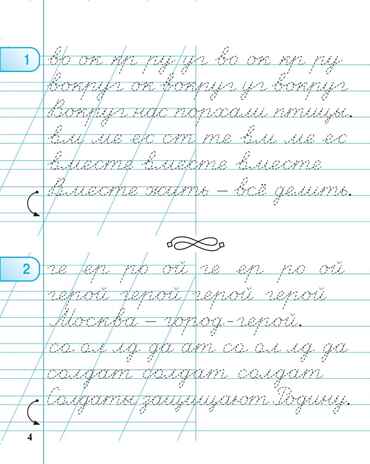 1
во ок кр ру уг во ок кр ру
вокруг ок вокруг уг вокруг
Вокруг нас порхали птицы.
вм ме ес ст те вм ме ес
вместе вместе вместе
Вместе жить – всё делить.
2
ге ер ро ой ге ер ро ой
герой герой герой герой
Москва – город-герой.
со ол лд да ат со ол лд да
солдат солдат солдат
Солдаты защищают Родину.
4